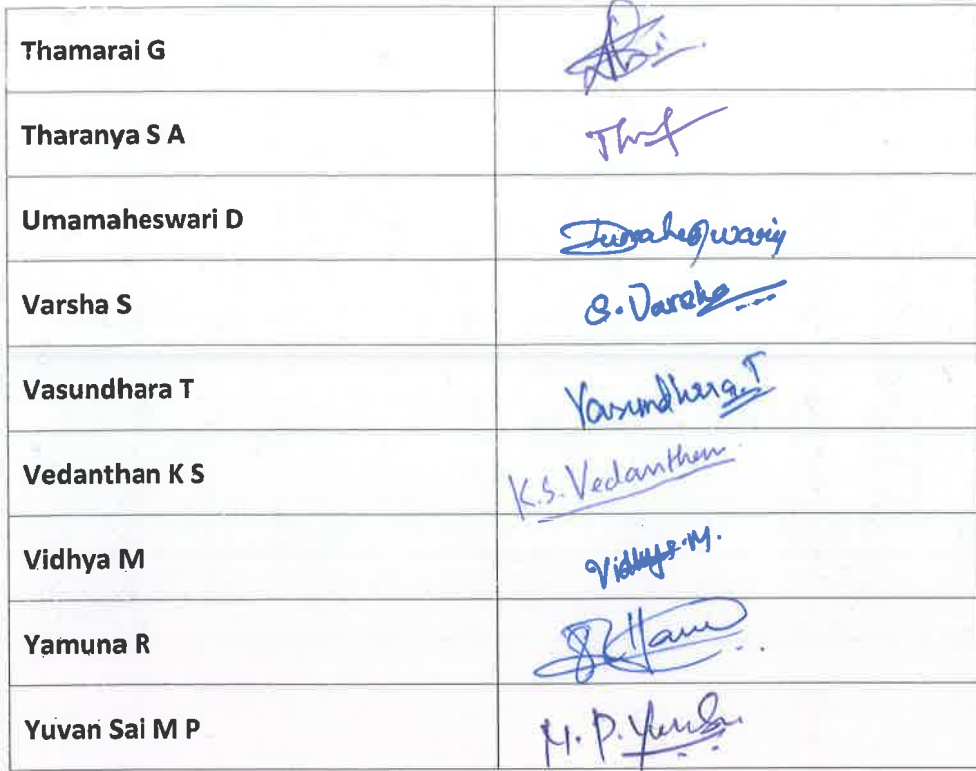 Thamarai G
Tharanya S A
Umamaheswari D
Varsha S
S. Varsha
Vasundhara T
Vasundhara. T
Vedanthan K S
K.S. Vedanthan
Vidhya M
Vidhya. M.
Yamuna R
Yuvan Sai M P